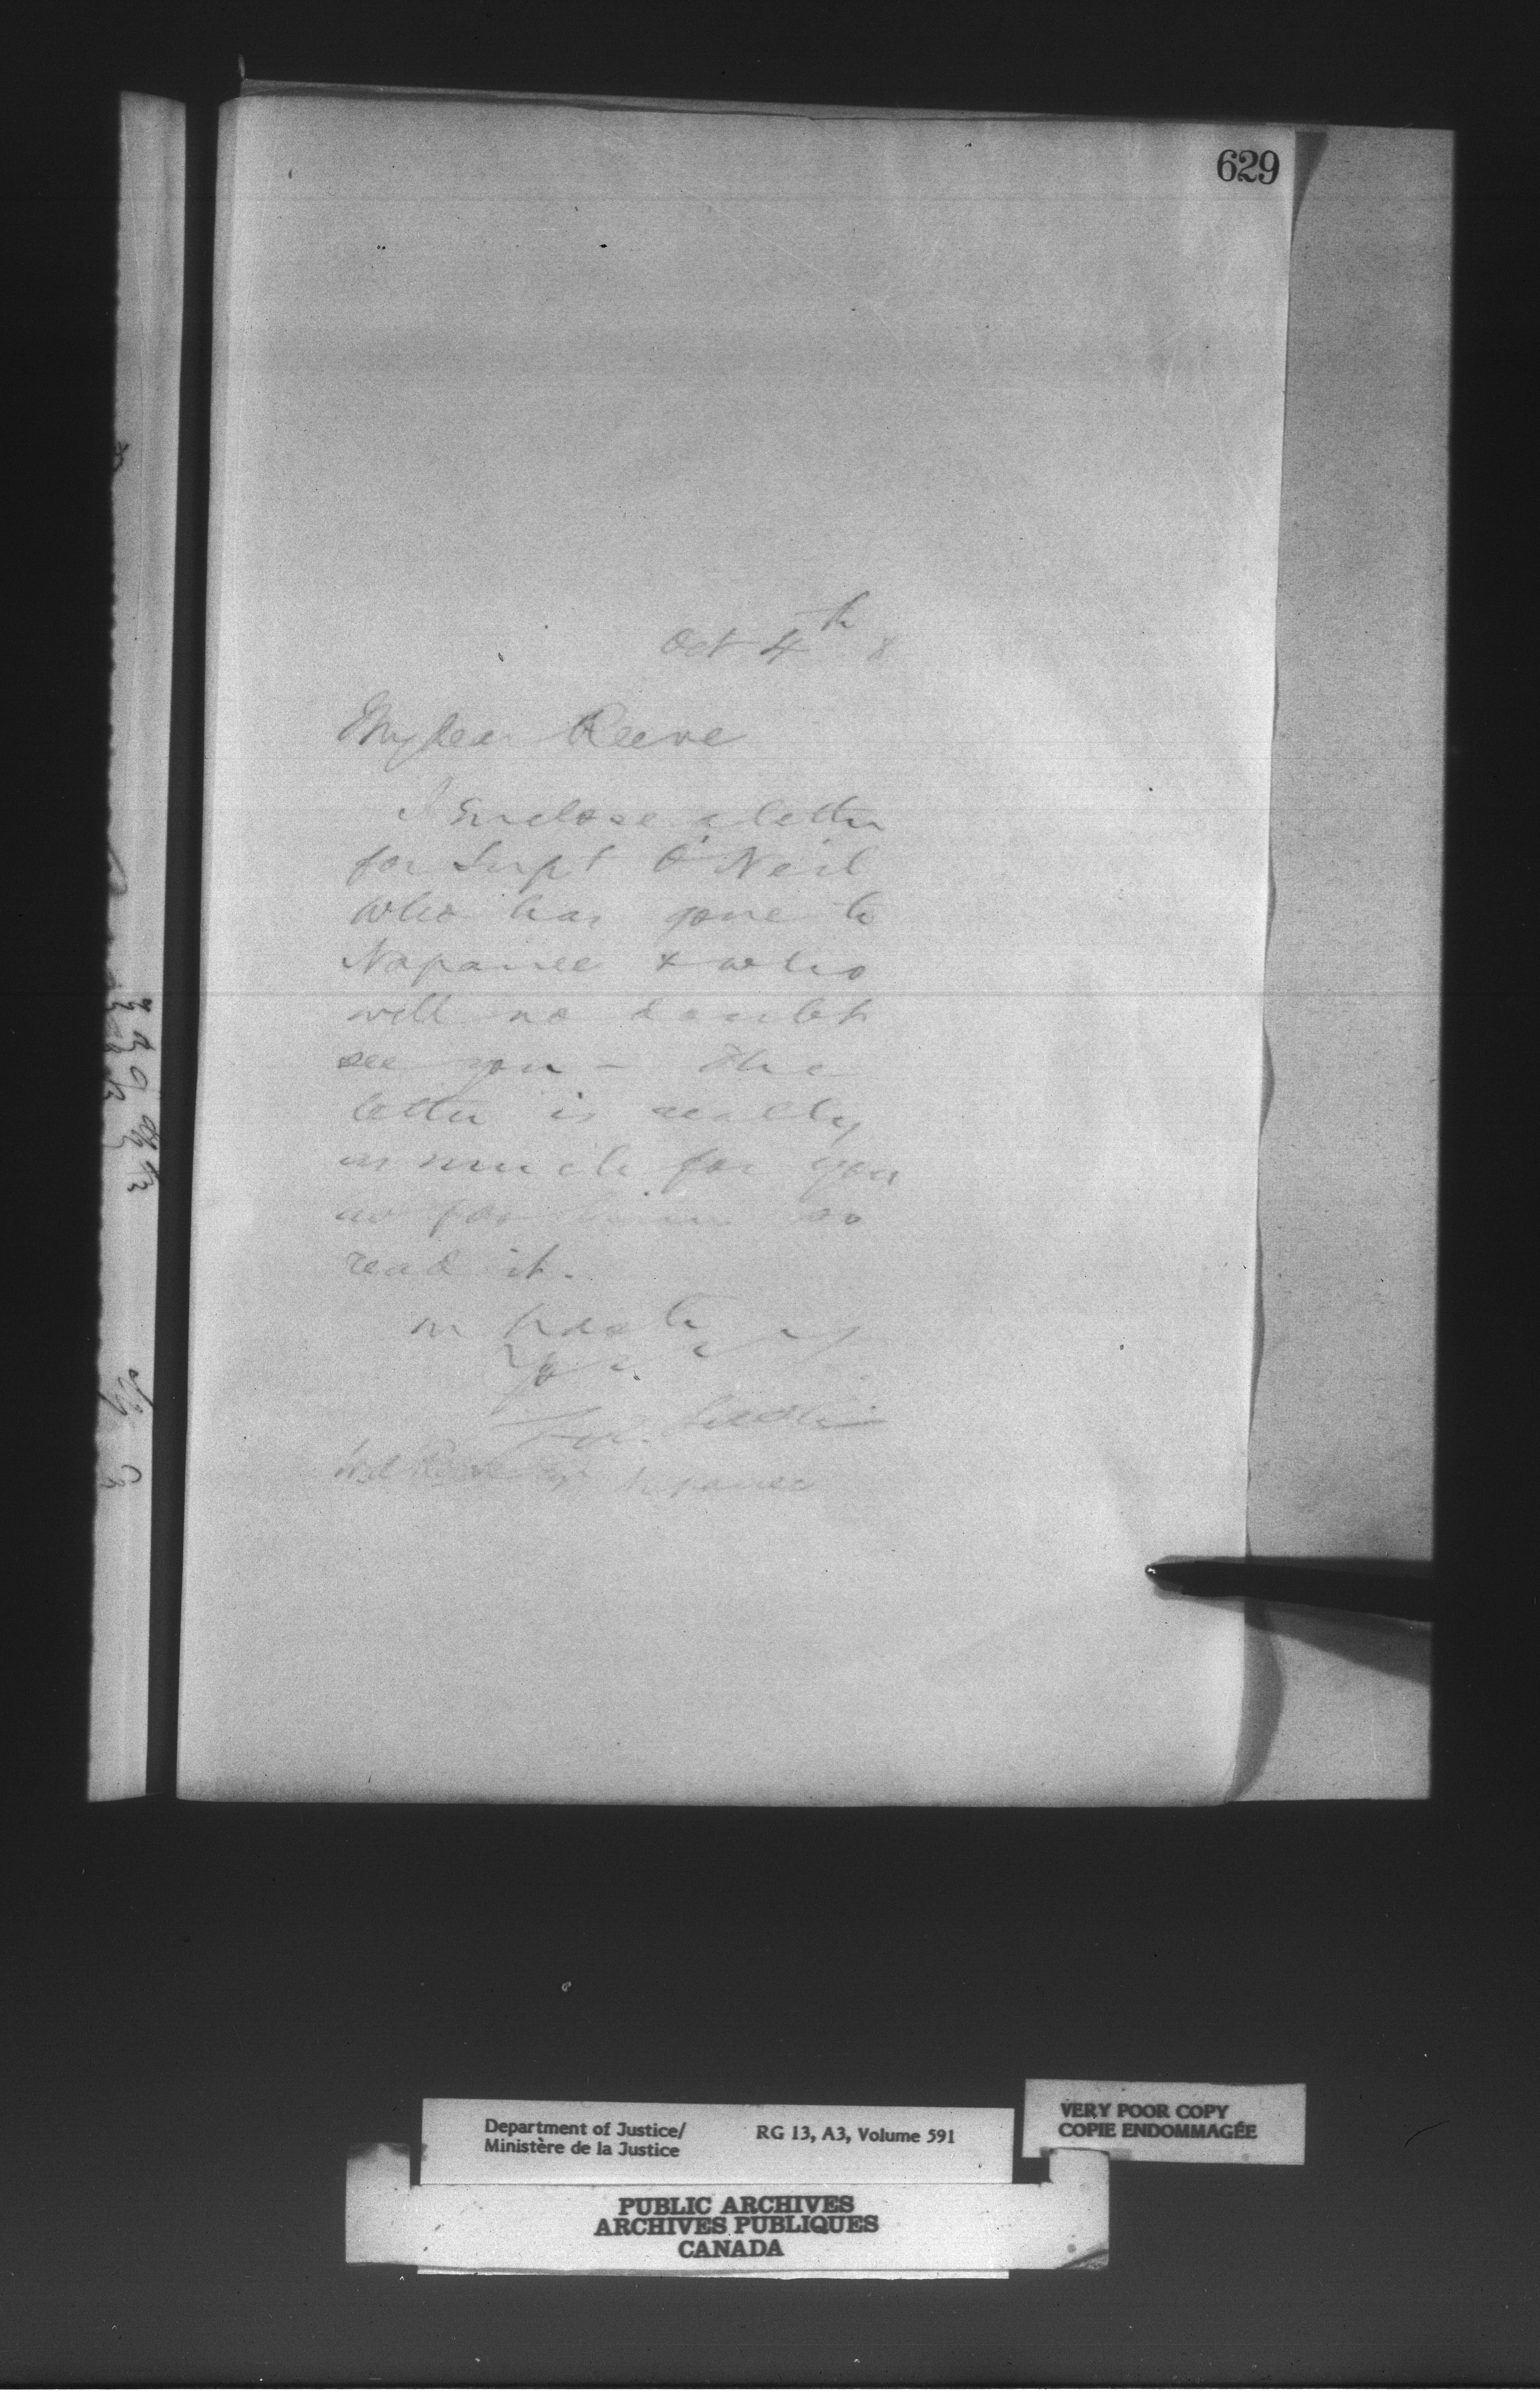 629
Oct 4th 8
My dear Reeve
I Enclose a letter
for Supt O'Neil
who has gone to
Napanee & who
will no doubt
see you - The
letter is really
as much for you
as for him so
read it.
in haste
Yours
Napanee
Department of Justice/ RG 13, A3, Volume 591
Ministère de la Justice
VERY POOR COPY
COPIE ENDOMMAGÉE
PUBLIC ARCHIVES
ARCHIVES PUBLIQUES
CANADA